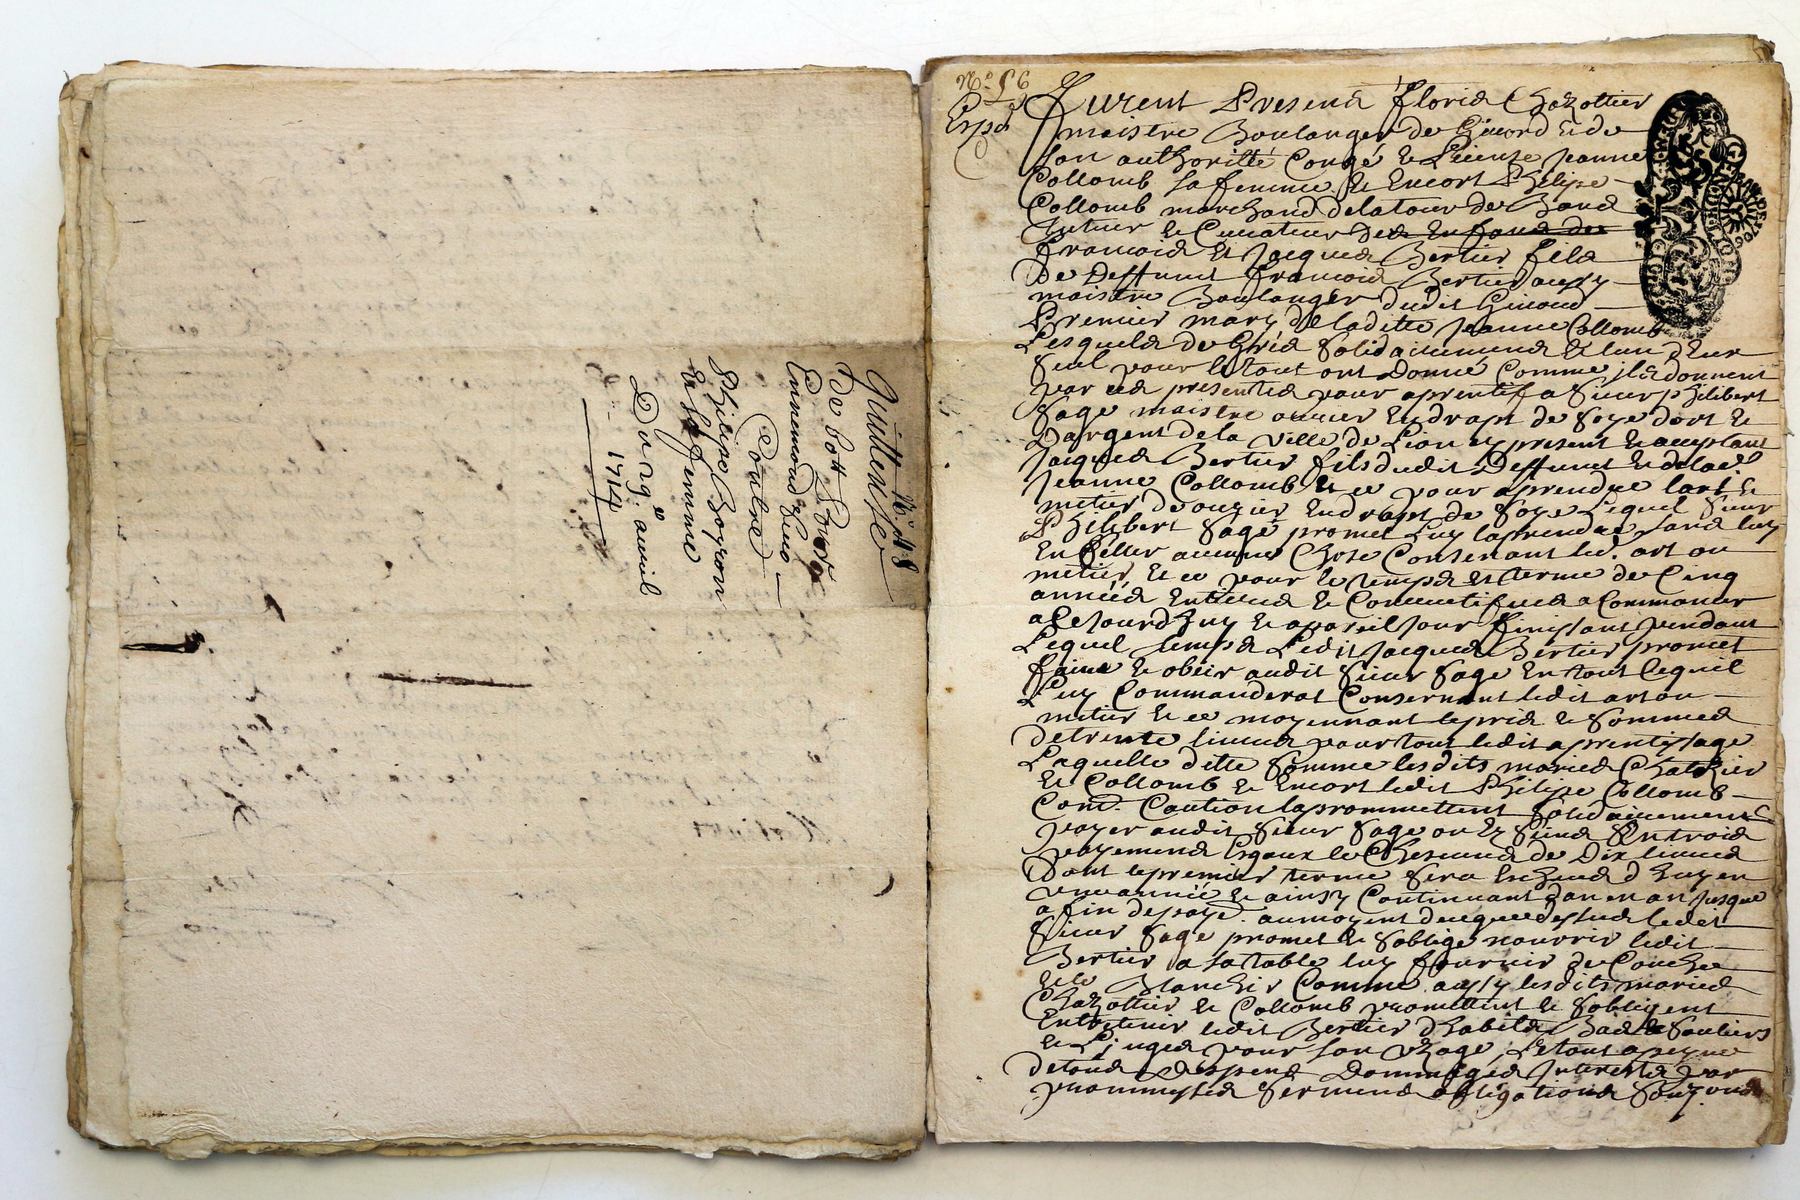 N.º 18
Quittense
De 60tt
Ennemond
Contre
Philipe Boyron
et sa femme
Du 29.e avril
1714
Nº 56
Exp.d
Furent Presens floris Chazottier
maistre Boulanger de Givord et de
son authoritté Congé et License Jeanne
Collomb sa femme et Encort Philipe
Collomb marchand de
tuteur et Curateur des Enfans de
francois et Jacques Bertier fils
De Deffunt francois Bertier aussy
maistre Boulanger dudit Givord
Premier mary de laditte Jeanne Collomb
Lesquels de Gré solidairement et lun d'eux
seul pour le tout ont Donné Comme ils donnent
par ces presentes pour aprentif a sieur philibert
sage maistre ouvrier En draps de soye dort et
Dargent de la ville de Lion icy present et acceptant
Jacques Bertier fils dudit Deffunt et de lad.
Jeanne Collomb et ce pour aprendre lart et
metier d'ouvrier En draps de soye Lequel sieur
Philibert sage promet Luy laprendre sans luy
En Céller aucune Chose Consernant led. art ou
métier, et ce pour le temps et terme de Cinq
années Entieres et Consecutifves a Commancer
a Cejourd'huy et a pareil jour finissant pendant
Lequel temps Ledit Jacques Bertier promet
et obeir audit sieur sage En tout Cequil
Luy Commanderat Consernant ledit art ou
metier et ce moyennant le prix et sommes
de trente livres pour tout ledit aprentissage
Laquelle ditte somme lesdits mariés
et Collomb et Encort ledit Philipe Collomb
Com. Caution la prommettent solidairement
payer audit sieur sage ou es siens En trois
payemens Esgaux le Chescuns de Dix livres
Dont le premier terme sera Escheus d'huy en
une année et ainsy Continuant dan en an jusque
a fin de paye. au moyent de ledit
sieur sage promet et soblige nourrir ledit
Bertier a sa table luy fournir de Couche
et le Blanchir Comme aussy lesdits mariés
Chazottier et Collomb promettent et sobligent
Entretenir ledit Bertier d'habits Bas et souliers
et Linges pour son uzage, Le tout a peyne
de tous Despens Dommages Interests par
prommesses sermens obligations